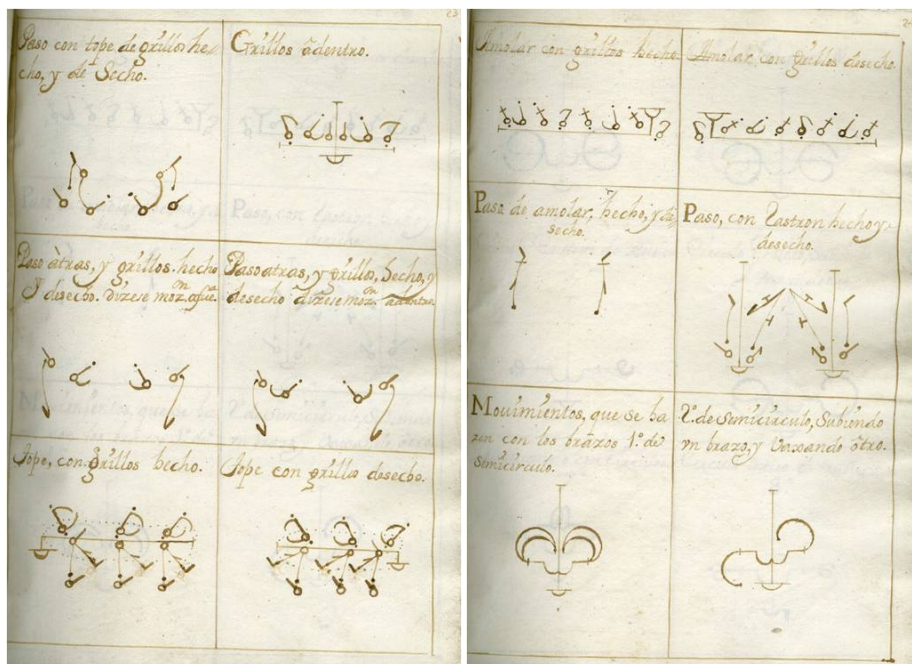 23
Paso con tope de grillos he-
cho, y de Secho.
Grillos âdentro.
Paso atras, y grillos hecho
Y desecho. Dizese moz.on afue.
Paso atras, y grillos, hecho, y
desecho dizese moz.on adentro.
Tope, con grillos hecho.
Tope con grillos desecho.
2
Amolar con grillos hecho.
Amolar con grillos desecho.
Paso de amolar, hecho, y de
secho.
Paso, con Lastron hecho y
desecho.
Mouimientos, que se ha
zen con los brazos 1.º de
semicirculo.
2.º de Semicirculo, Subiendo
vn brazo, y Vaxando ôtro.